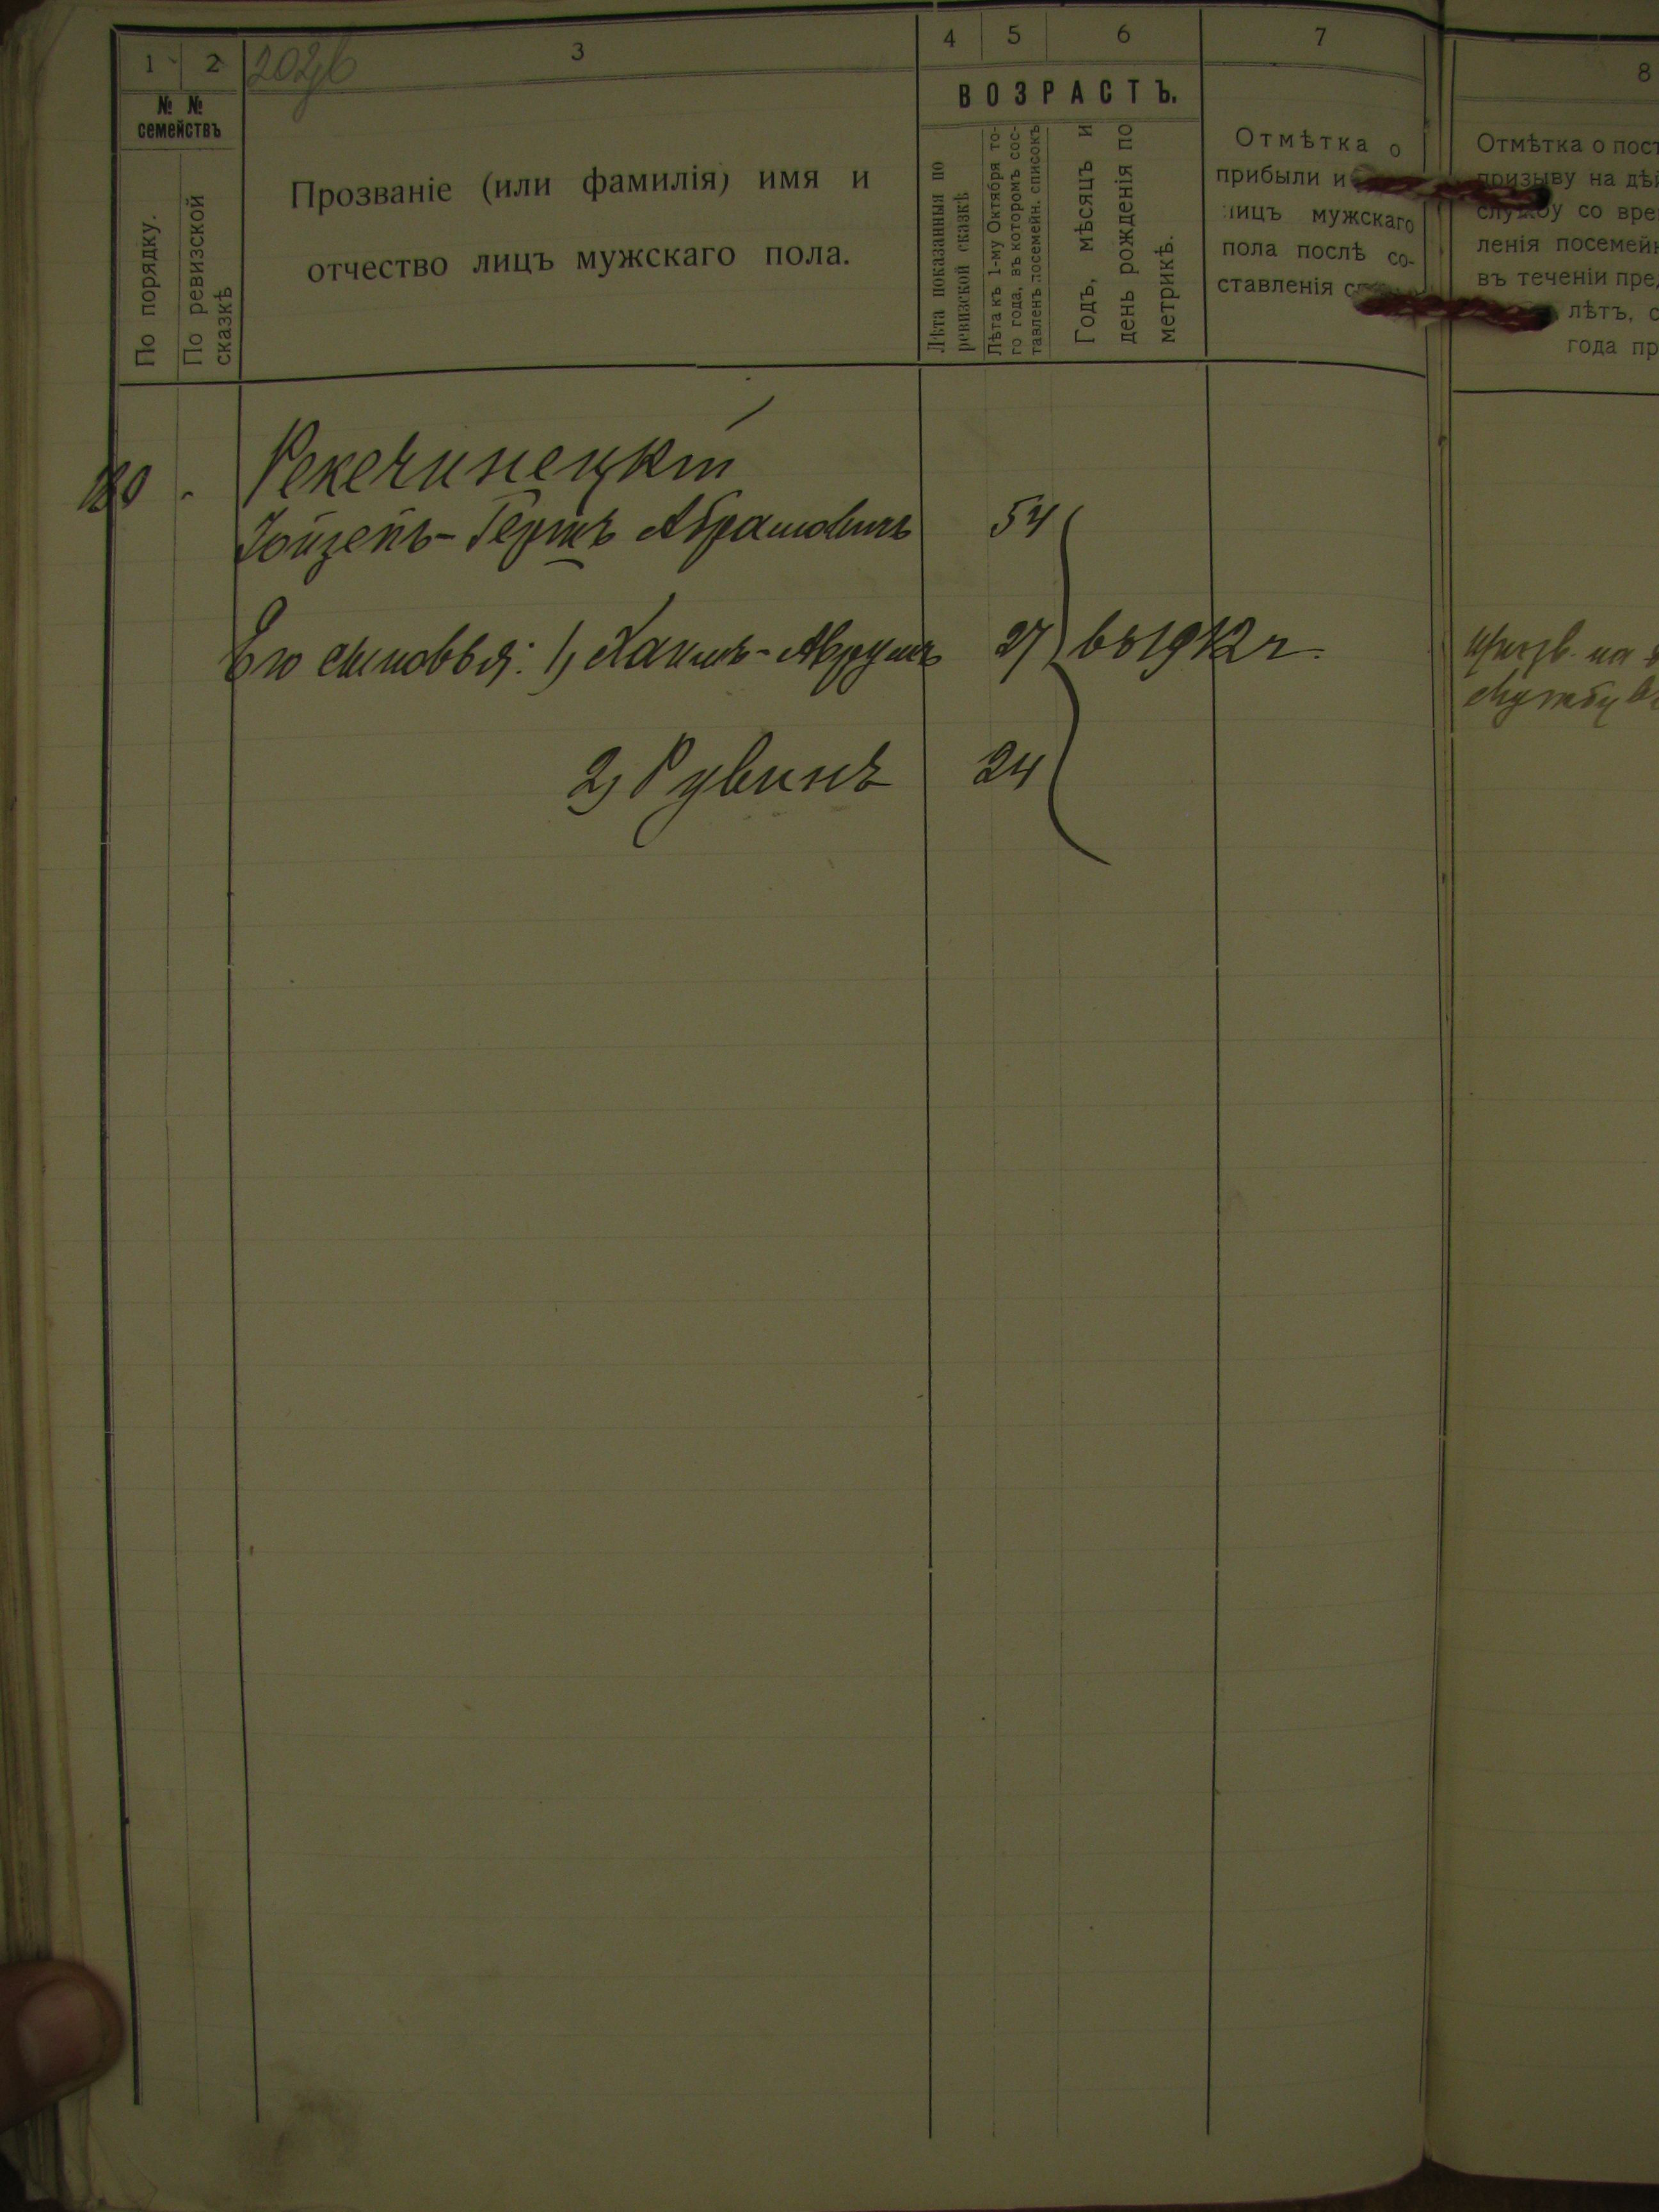 1 2 3 4 5 6 7 8
№ № семействъ
По порядку.
По ревизской сказкѣ
Прозваніе (или фамилія) имя и
отчество лицъ мужскаго пола.
ВОЗРАСТЪ.
Лѣта показанныя по
ревизской сказкѣ
Лѣта къ 1-му Октября то-
го года, въ которомъ сос-
тавленъ посемейн. списокъ
Годъ, мѣсяцъ и
день рожденія по
метрикѣ.
Отмѣтка о
прибыли и
лицъ мужскаго
пола послѣ со-
ставленія
Отмѣтка о пост
призыву на дѣй
службу со вре
ленія посемейн
въ теченіи пред
лѣтъ, с
года пр
180 Рекечинецкій
Іойзепъ-Гершъ Абрамовичъ 54
Его сыновья: 1) Хаимъ-Аврумъ 27 въ 1912 г.
2) Рувинъ 24
Призв. на
службу въ